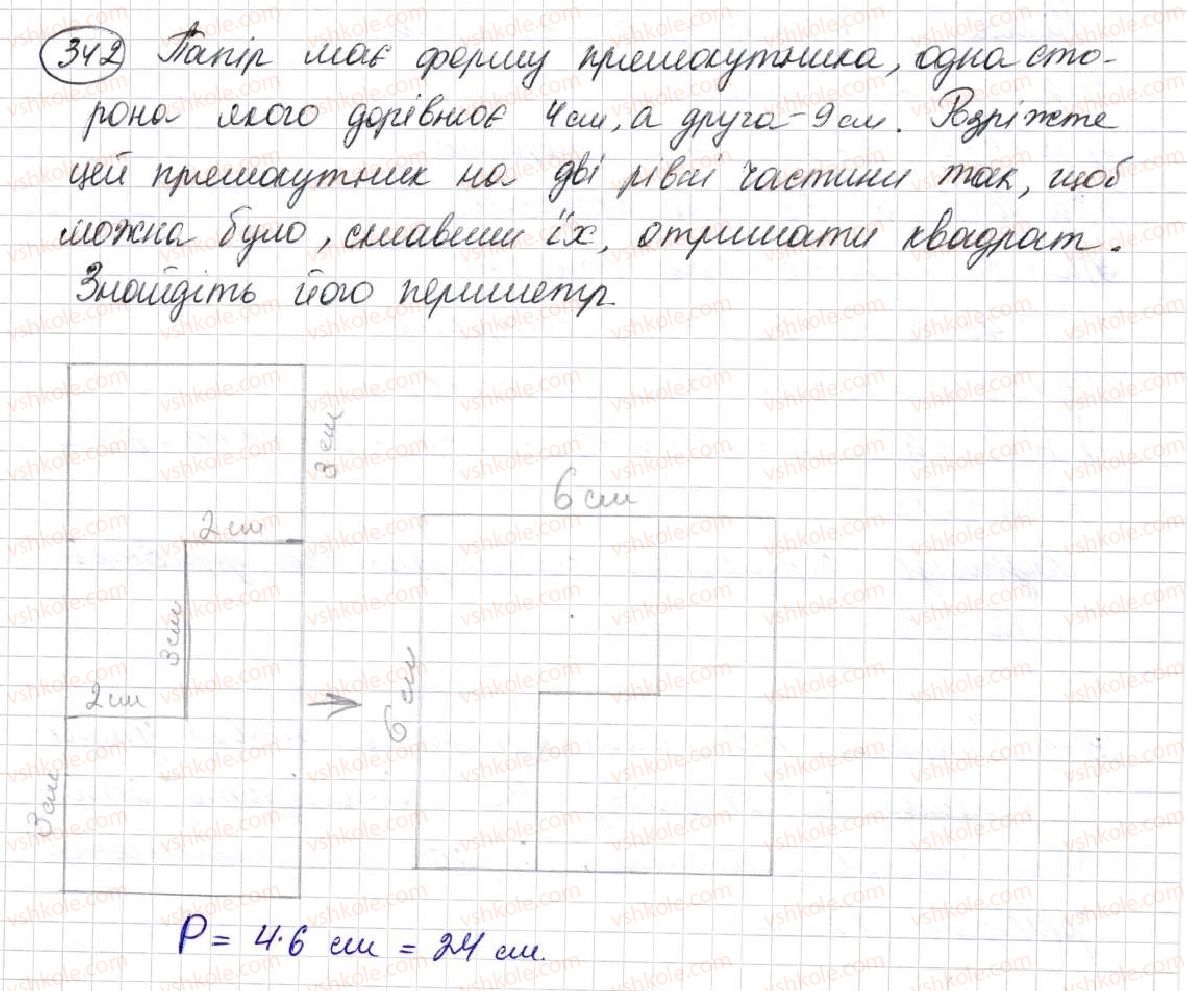 342 Папір має форму прямокутника, одна сто-
рона якого дорівнює 4 см, а друга - 9 см. Розріжте
цей прямокутник на дві рівні частини так, щоб
можна було, склавши їх, отримати квадрат.
Знайдіть його периметр.
3 см
2 см
3 см
2 см
3 см
6 см
6 см
P = 4·6 см = 24 см.
vshkole.com